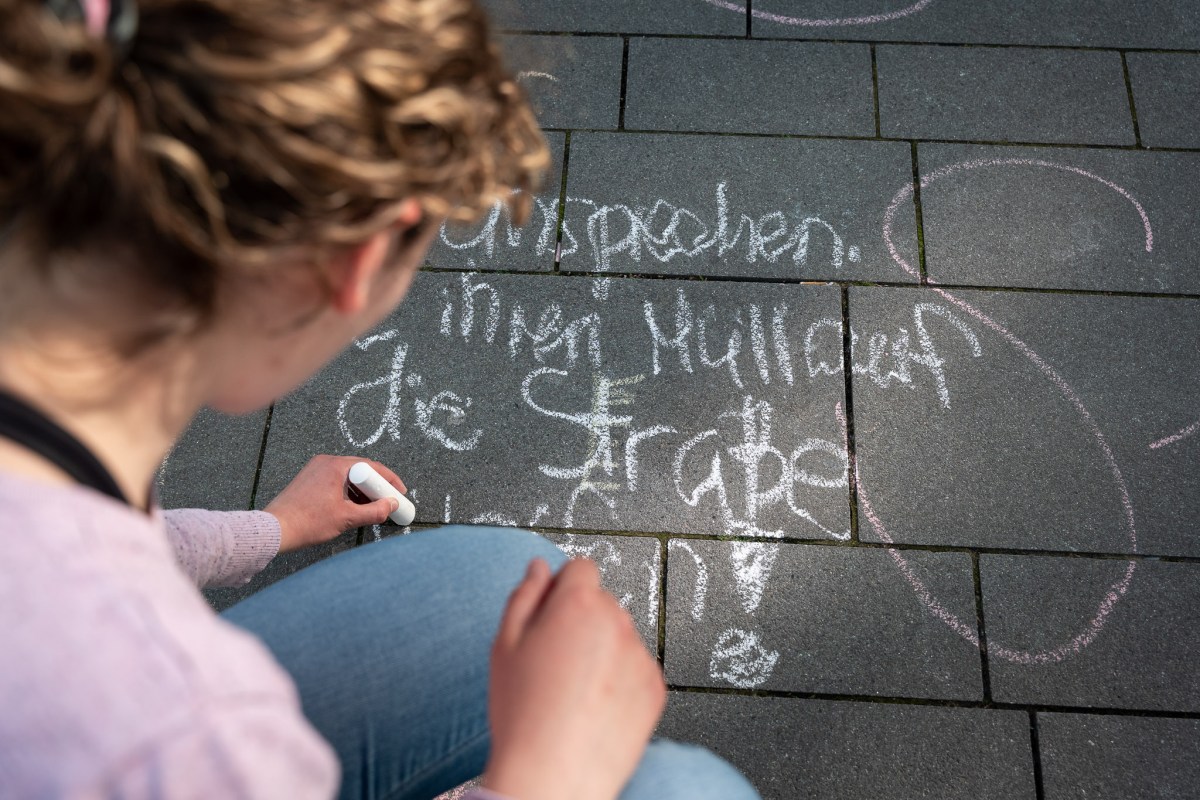 ansprechen.
ihren Müll auf
die Straße
!